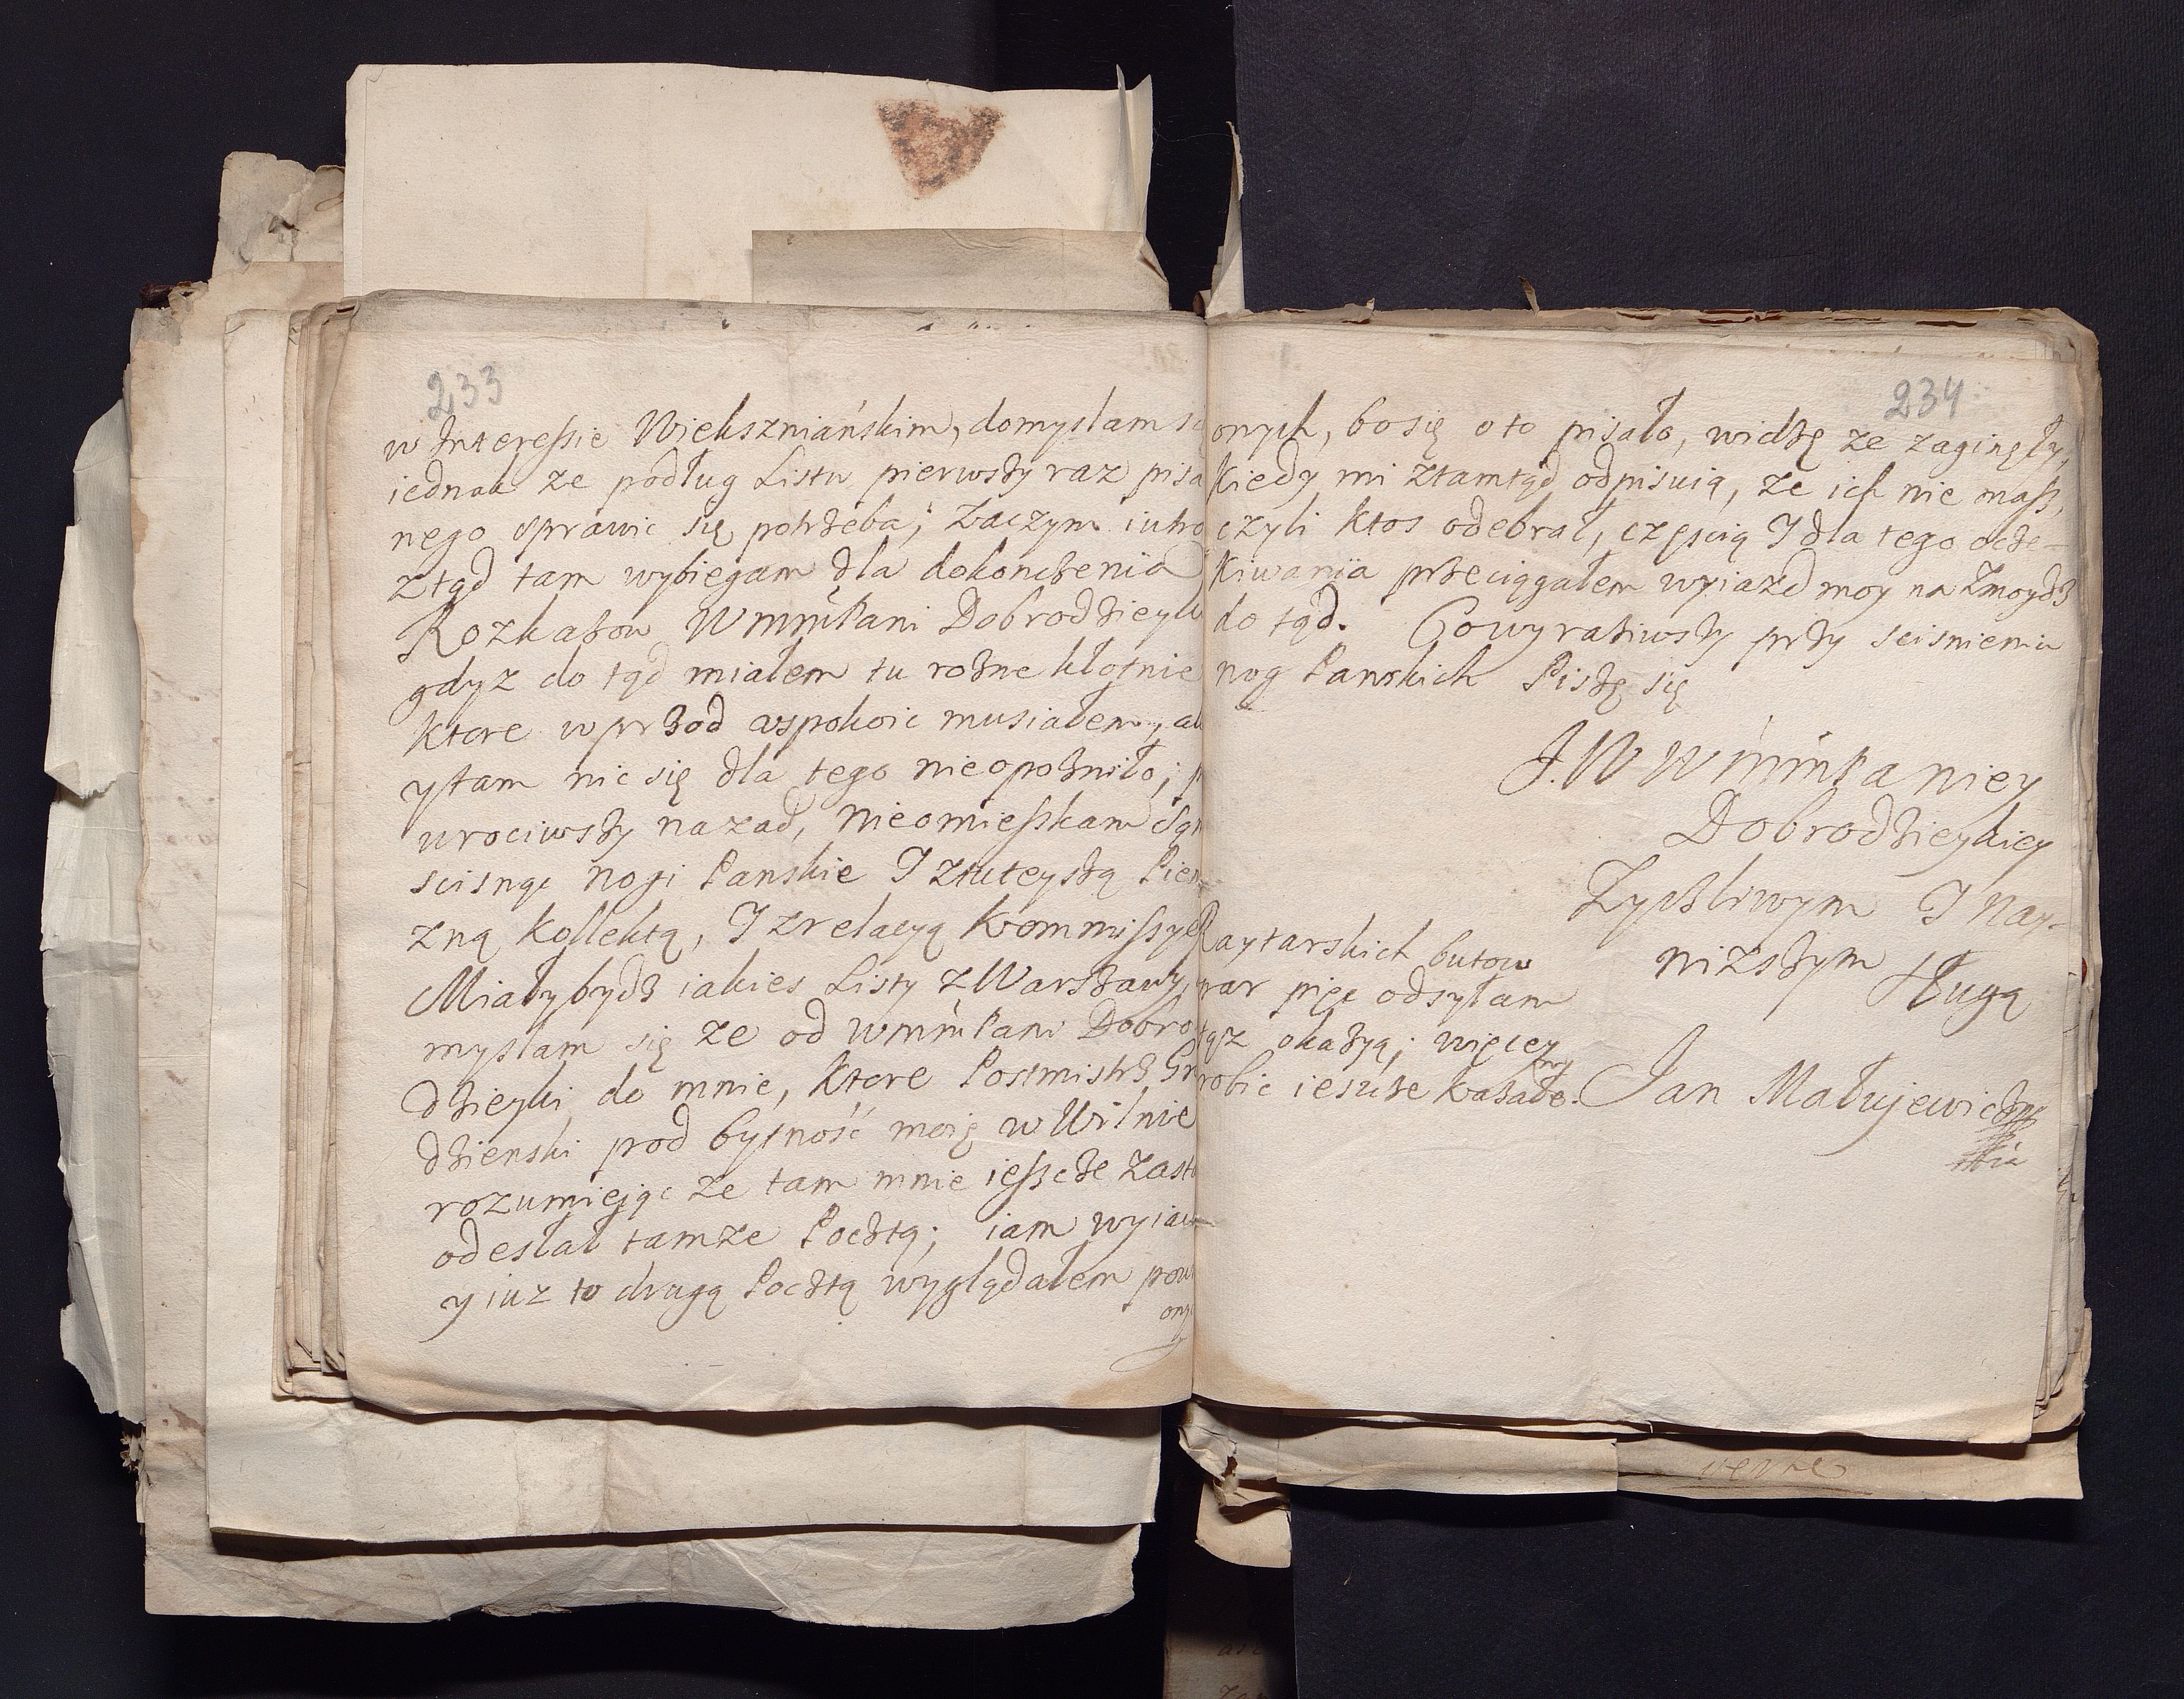 233
w Interessie Wiekszniańskim, domyslam si
iednak ze podług Listu pierwszy raz pisa
nego sprawic się potrzeba; Zaczym iutro
ztąd tam wybiegam dla dokonczenia
Rozkazow WMMPani Dobrodzieyk
gdyz do tąd miałem tu rozne kłotnie
ktore wprzod uspokoic musiałem, al
y tam nic się dla tego nieopozniło;
wrociwszy nazad, nieomieszkam
scisnąc nogi Panskie I ztuteyszą Pien
zną kollektą, I zrelacyą kommissye
Miały bydz iakies Listy z Warszawy,
myslam się ze od WMMPani Dobro
dzieyki do mnie, ktore Postmistrz Gr
dzienski pod bytność moię w Wilnie
rozumiejąc ze tam mnie ieszcze zast
odesłał tamze Pocztą; iam wyiaw
y iuz to drugą Pocztą wyglądałem pow
ony
234
onych, bo się o to pisało, widzę ze zaginęły,
kiedy mi ztamtąd odpisuią, ze ich nie masz,
czyli ktos odebrał, częscią I dla tego ocze-
kiwania przeciągałem wyiazd moy na Zmoydz
do tąd. Co wyraziwszy przy scisnieniu
nog Panskich Piszę się
J.W WMMPaniey
Dobrodzieykiey
Zyczliwym I nay-
nizszym sługą
Jan Matujewicz
Raytarskich butow
par pięc odsyłam
tąz okazyą; więcey
robic ieszcze kazałem.